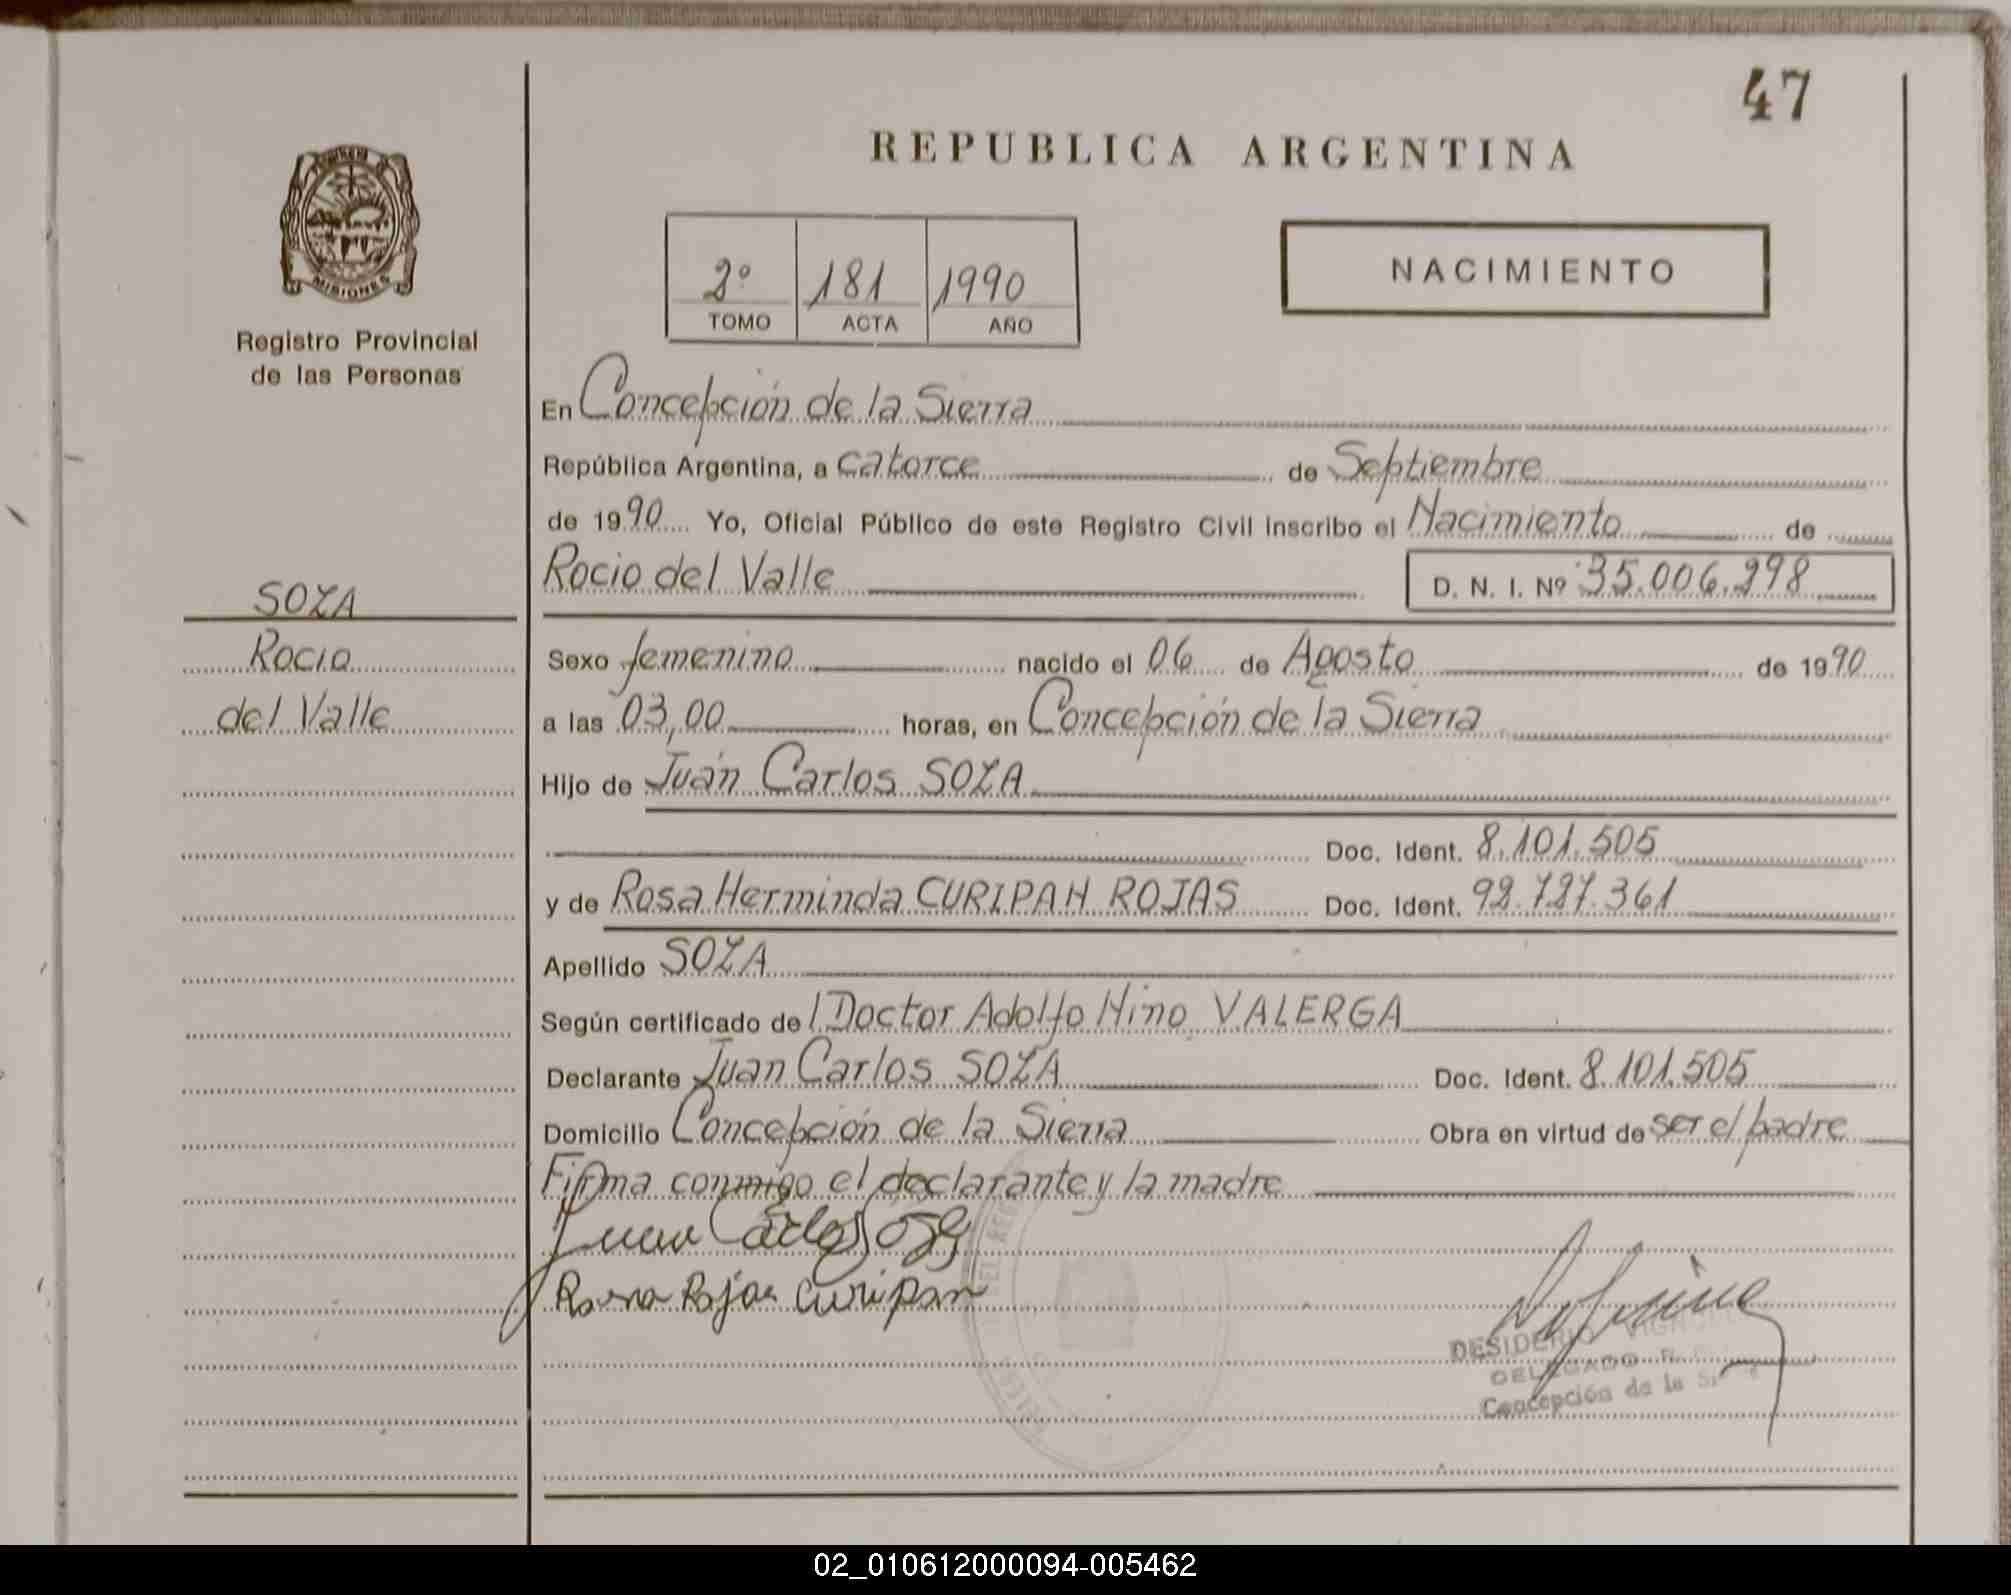 47
REPUBLICA ARGENTINA
MISIONES
Registro Provincial
de las Personas
2º 181 1990
TOMO ACTA AÑO
NACIMIENTO
En Concepción de la Sierra
República Argentina, a catorce de Septiembre
de 1990 Yo, Oficial Público de este Registro Civil inscribo el Nacimiento de
Rocio del Valle D. N. I. Nº 35.006.298
SOZA
Rocio
del Valle
Sexo femenino nacido el 06 de Agosto de 1990
a las 03,00 horas, en Concepción de la Sierra
Hijo de Juan Carlos SOZA
Doc. Ident. 8.101.505
y de Rosa Herminda CURIPAN ROJAS Doc. Ident. 92.727.361
Apellido SOZA
Según certificado de l Doctor Adolfo Nino VALERGA
Declarante Juan Carlos SOZA Doc. Ident. 8.101.505
Domicilio Concepción de la Sierra Obra en virtud de ser el padre
Firma conmigo el declarante y la madre
Juan Carlos Soza
Rosa Rojas Curipan
DESIDERIO
DELEGADO R.
Concepción de la
02_010612000094-005462